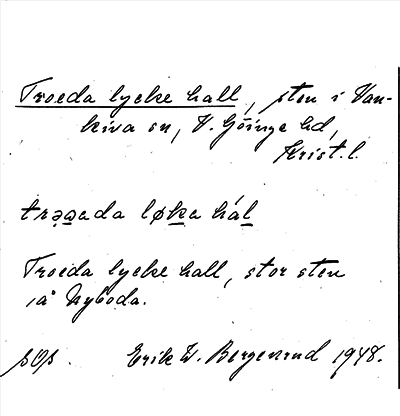 Troeda lycke hall, sten i Van-
kiva sn, V. Göinge hd,
Krist. l.
trəa̲ada løk̲a hál̲
Troeda lycke hall, stor sten
i å Nyboda.
sOs. Erik W. Bergenrud 1948.